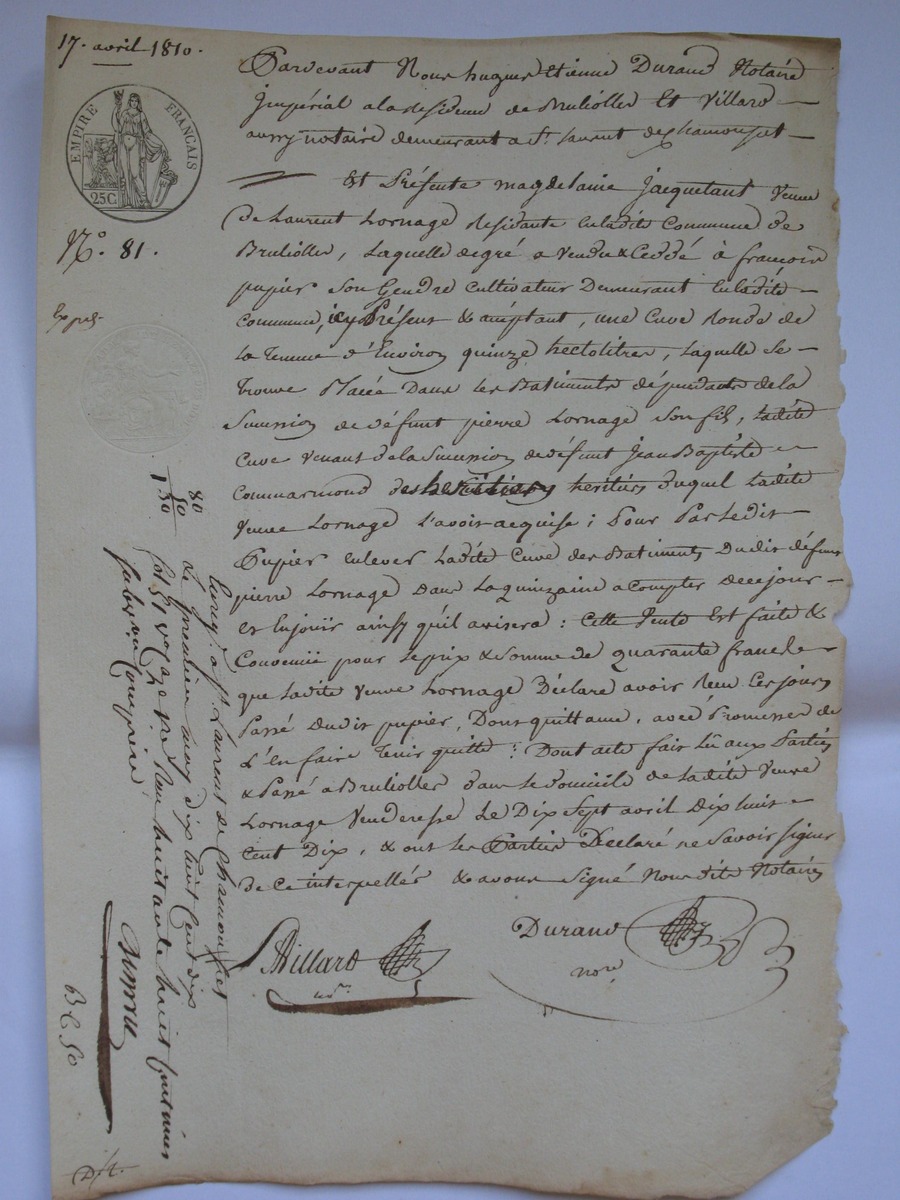 17. avril 1810.
EMPIRE FRANCAIS
25C
N.° 81.
Pardevant Nous hugues Etienne Durand Notaire
Impérial ala Residence de Brullioles Et Villard
aussy notaire demeurant a St. Laurent de Chamousset
Est Présente magdelaine Jacquetant Veuve
de Laurent Lornage Residante en ladite Commune de
Brullioles, Laquelle degré a Vendu & Ceddé à françois
pupier son Gendre Cultivateur Demeurant en ladite
Commune, icy Présent & acceptant, une Cuve Ronde de
La Tenue d'Environ quinze hectolitres, Laquelle se
Trouve Placée Dans les Batiments dépendants de la
Succession de défunt pierre Lornage Son fils, Ladite
Cuve Venant de la Succession de défunt Jean Baptiste
Commarmond des heritiers duquel Ladite
Veuve Lornage L'avoit acquise ; Pour Par Ledit
Pupier enlever Ladite Cuve des Batiments Dudit défunt
pierre Lornage Dans La quinzaine a Compter de ce jour
et En jouir ainsy qu'il avisera : Cette Vente Est faite &
Convenüe pour Le prix & Somme de quarante francs
que Ladite Veuve Lornage Déclare avoir Reçu Ces jours
Passé Dudit pupier, Dont quittance, avec Promesse de
L'en faire Tenir quitte : Dont acte fait Lû aux Parties
& Passé a Brullioles dans Le Domicile de Ladite Veuve
Lornage Venderesse Le Dix Sept avril Dix huit
Cent Dix, & ont Les Parties Déclaré ne Savoir signer
de ce interpellés & avons Signé Nousdits Notaires
Villard
Durand
nore
80
50
1 30
à St Laurent de Chamousset
Le premier may dix huit Cent dix
huitante huit Centimes
Subvention Comprise